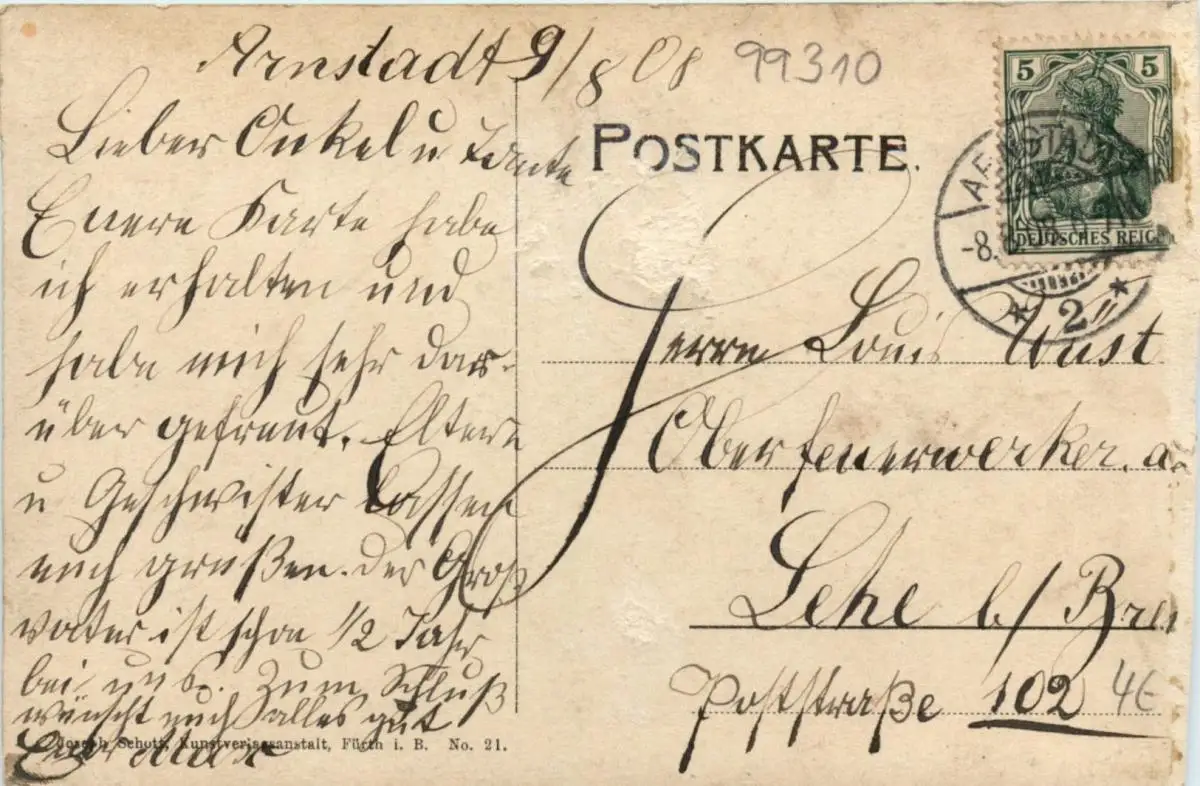 Arnstadt 9/8 08 99310
Lieber Onkel u Tante
Euere Karte habe
ich erhalten und
habe mich sehr dar-
über gefreut. Eltern
u Geschwister lassen
euch grüßen. Der Groß
vater ist schon 1/2 Jahr
bei uns. Zum Schluß
wünscht euch alles gut
Joseph Schott, Kunstverlagsanstalt, Fürth i. B. No. 21.
POSTKARTE.
5 5
DEUTSCHES REICH
ARNSTADT
-8.
* 2 *
Herrn Louis Wüst
Oberfeuerwerker. a.
Lehe b/ Brem
Poststraße 102
4E